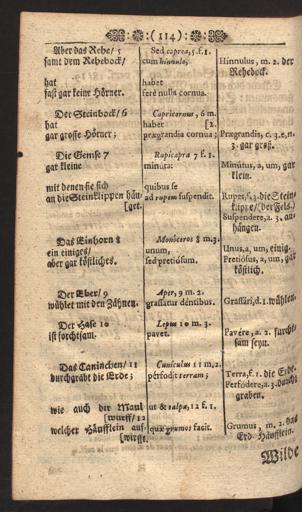 :(114):
Aber das Rehe/ 5
samt dem Rehebock/
hat
fast gar keine Hörner.
Der Steinbock/ 6
hat
gar grosse Hörner;
Die Gemse 7
gar kleine
mit denen sie sich
an die Steinklippen hän-
[get.
Das Einhorn 8
ein einiges/
aber gar köstliches.
Der Eber/ 9
wühlet mit den Zähnen.
Der Hase 10
ist forchtsam.
Das Caninchen/ 11
durchgräbt die Erde;
wie auch der Maul
[wurff/ 12
welcher Häufflein auf-
[wirfft.
Sed caprea, 5. f. 1.
cum hinnulo,
habet
ferè nulla cornua.
Capricornus, 6 m.
habet [2.
prægrandia cornua;
Rupicapra 7 f. 1.
minúta:
quibus se
ad rupem suspendit.
Monóceros 8 m. 3.
unum,
sed pretiósum.
Aper, 9 m. 2.
grassatur déntibus.
Lepus 10 m. 3.
pavet.
Cuniculus 11 m. 2.
pérfodit terram;
ut & talpa, 12 f. 1.
quæ grumos facit.
Hinnulus, m. 2. der
Rehebock.
Prægrandis, c. 3. e, n.
3. gar groß.
Minútus, a, um, gar
klein.
Rupes, f. 3. die Stein-
klippe/ (der Fels.)
Suspendere, a. 3. auf-
hängen.
Unus, a, um, einig.
Pretiósus, a, um, gar
köstlich.
Grassári, d. 1. wühlen.
Pavére, a. 2. furcht-
sam seyn.
Terra, f. 1. die Erde.
Perfodere, a. 3. durch-
graben.
Grumus, m. 2. das
Erd-Häufflein.
Wilde